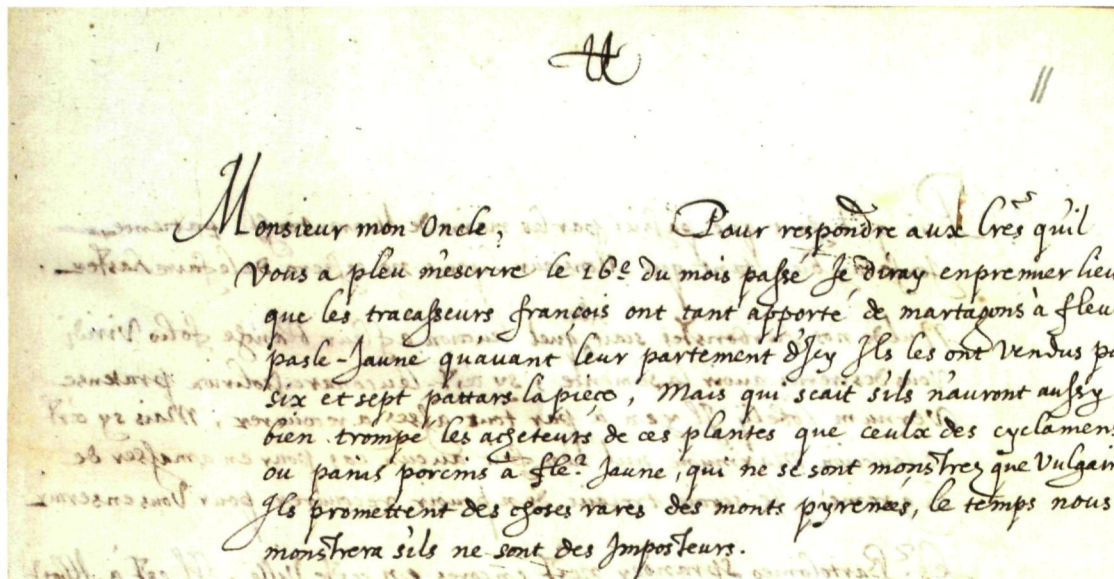 11
Monsieur mon Oncle, Pour respondre aux lres qu'il
vous a pleu m'escrire le 16e du mois passé Je diray en premier lieu
que les tracasseurs françois ont tant apporté de martagons à fleu
pasle-Jaune quavant leur partement d'Icy Ils les ont vendus po
six et sept pattars la piece, Mais qui scait s'ils n'auront aussy
bien trompé les acheteurs de ces plantes que ceulx des cyclamens
ou panis porcins à fle.r Jaune, qui ne se sont monstrez que Vulgair
Ils promettent des choses rares des monts pyrenees, le temps nous
monstrera s'ils ne sont des Imposteurs.